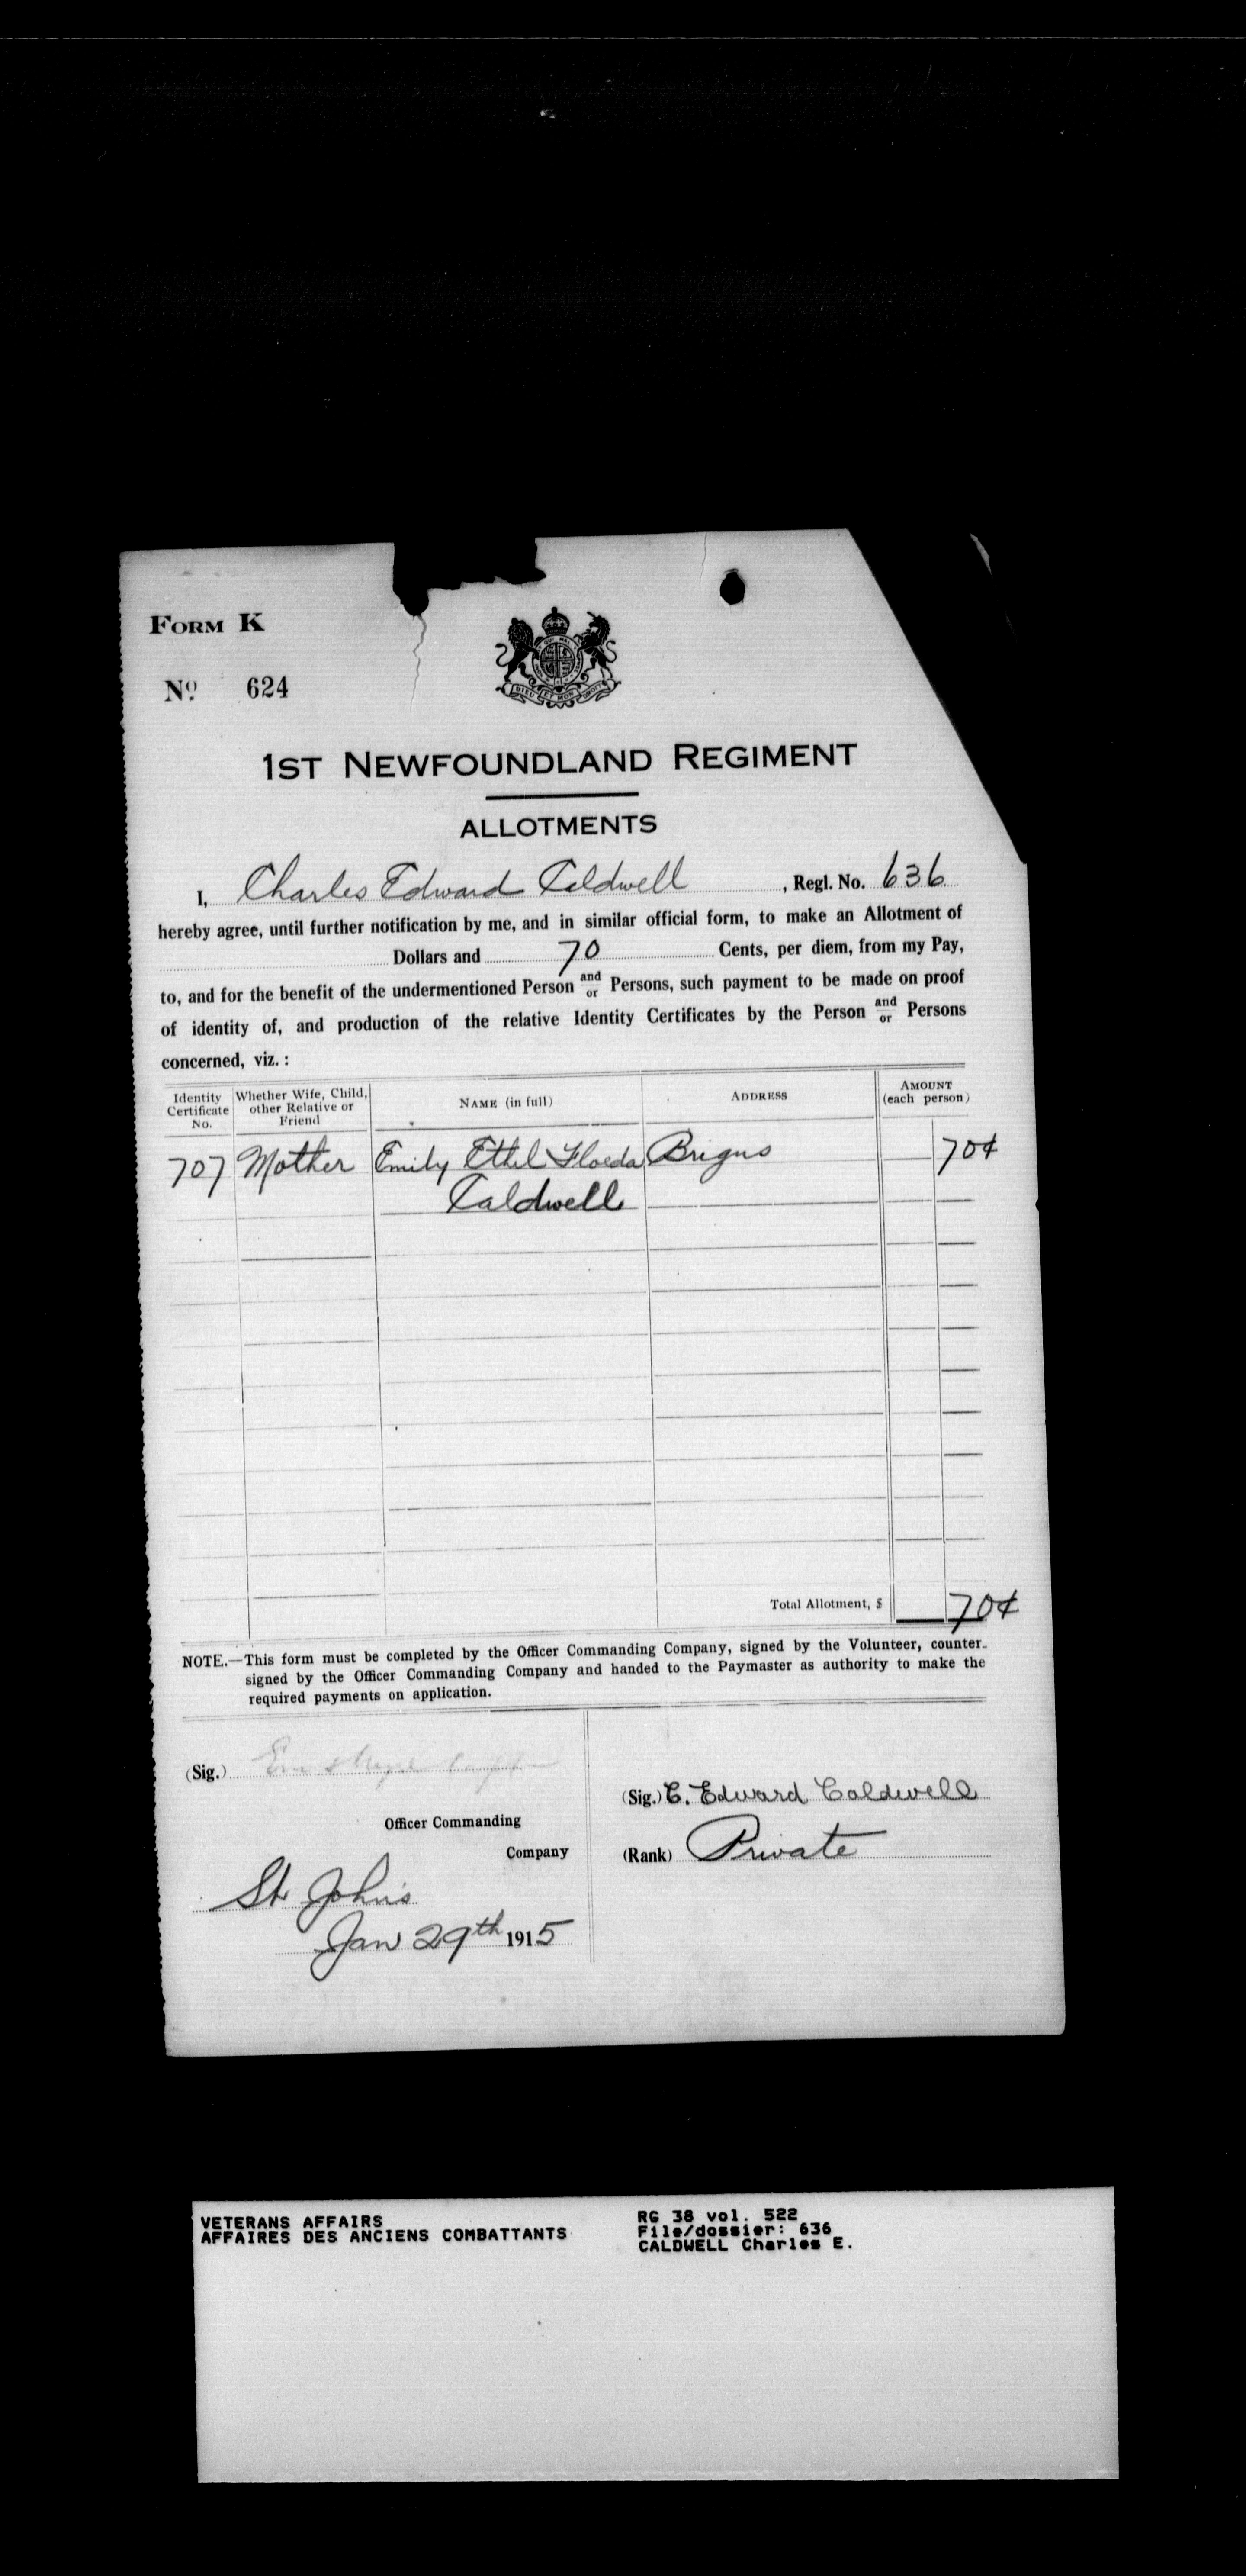 FORM K
Nº 624
DIEU ET MON DROIT
1ST NEWFOUNDLAND REGIMENT
ALLOTMENTS
I, Charles Edward Caldwell, Regl. No. 636
hereby agree, until further notification by me, and in similar official form, to make an Allotment of
Dollars and 70 Cents, per diem, from my Pay,
to, and for the benefit of the undermentioned Person and/or Persons, such payment to be made on proof
of identity of, and production of the relative Identity Certificates by the Person and/or Persons
concerned, viz. :
Identity Certificate No. Whether Wife, Child, other Relative or Friend NAME (in full) ADDRESS AMOUNT (each person)
707 Mother Emily Ethel Brigus 70¢
Caldwell
Total Allotment, $ 70¢
NOTE.—This form must be completed by the Officer Commanding Company, signed by the Volunteer, counter-
signed by the Officer Commanding Company and handed to the Paymaster as authority to make the
required payments on application.
(Sig.)
(Sig.) C. Edward Caldwell
Officer Commanding
Company
(Rank) Private
St John's
Jan 29th 1915
VETERANS AFFAIRS
AFFAIRES DES ANCIENS COMBATTANTS
RG 38 vol. 522
File/dossier: 636
CALDWELL Charles E.